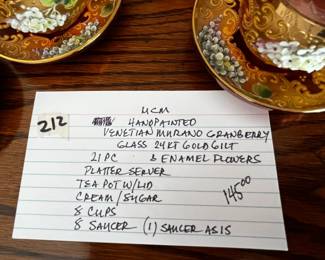 212
MCM
HANDPAINTED
VENETIAN MURANO GRANBERRY
GLASS 24KT GOLD GILT
21 PC & ENAMEL FLOWERS
PLATTER SERVER
TEA POT W/LID
CREAM/SUGAR
145.00
8 CUPS
8 SAUCER (1) SAUCER AS IS